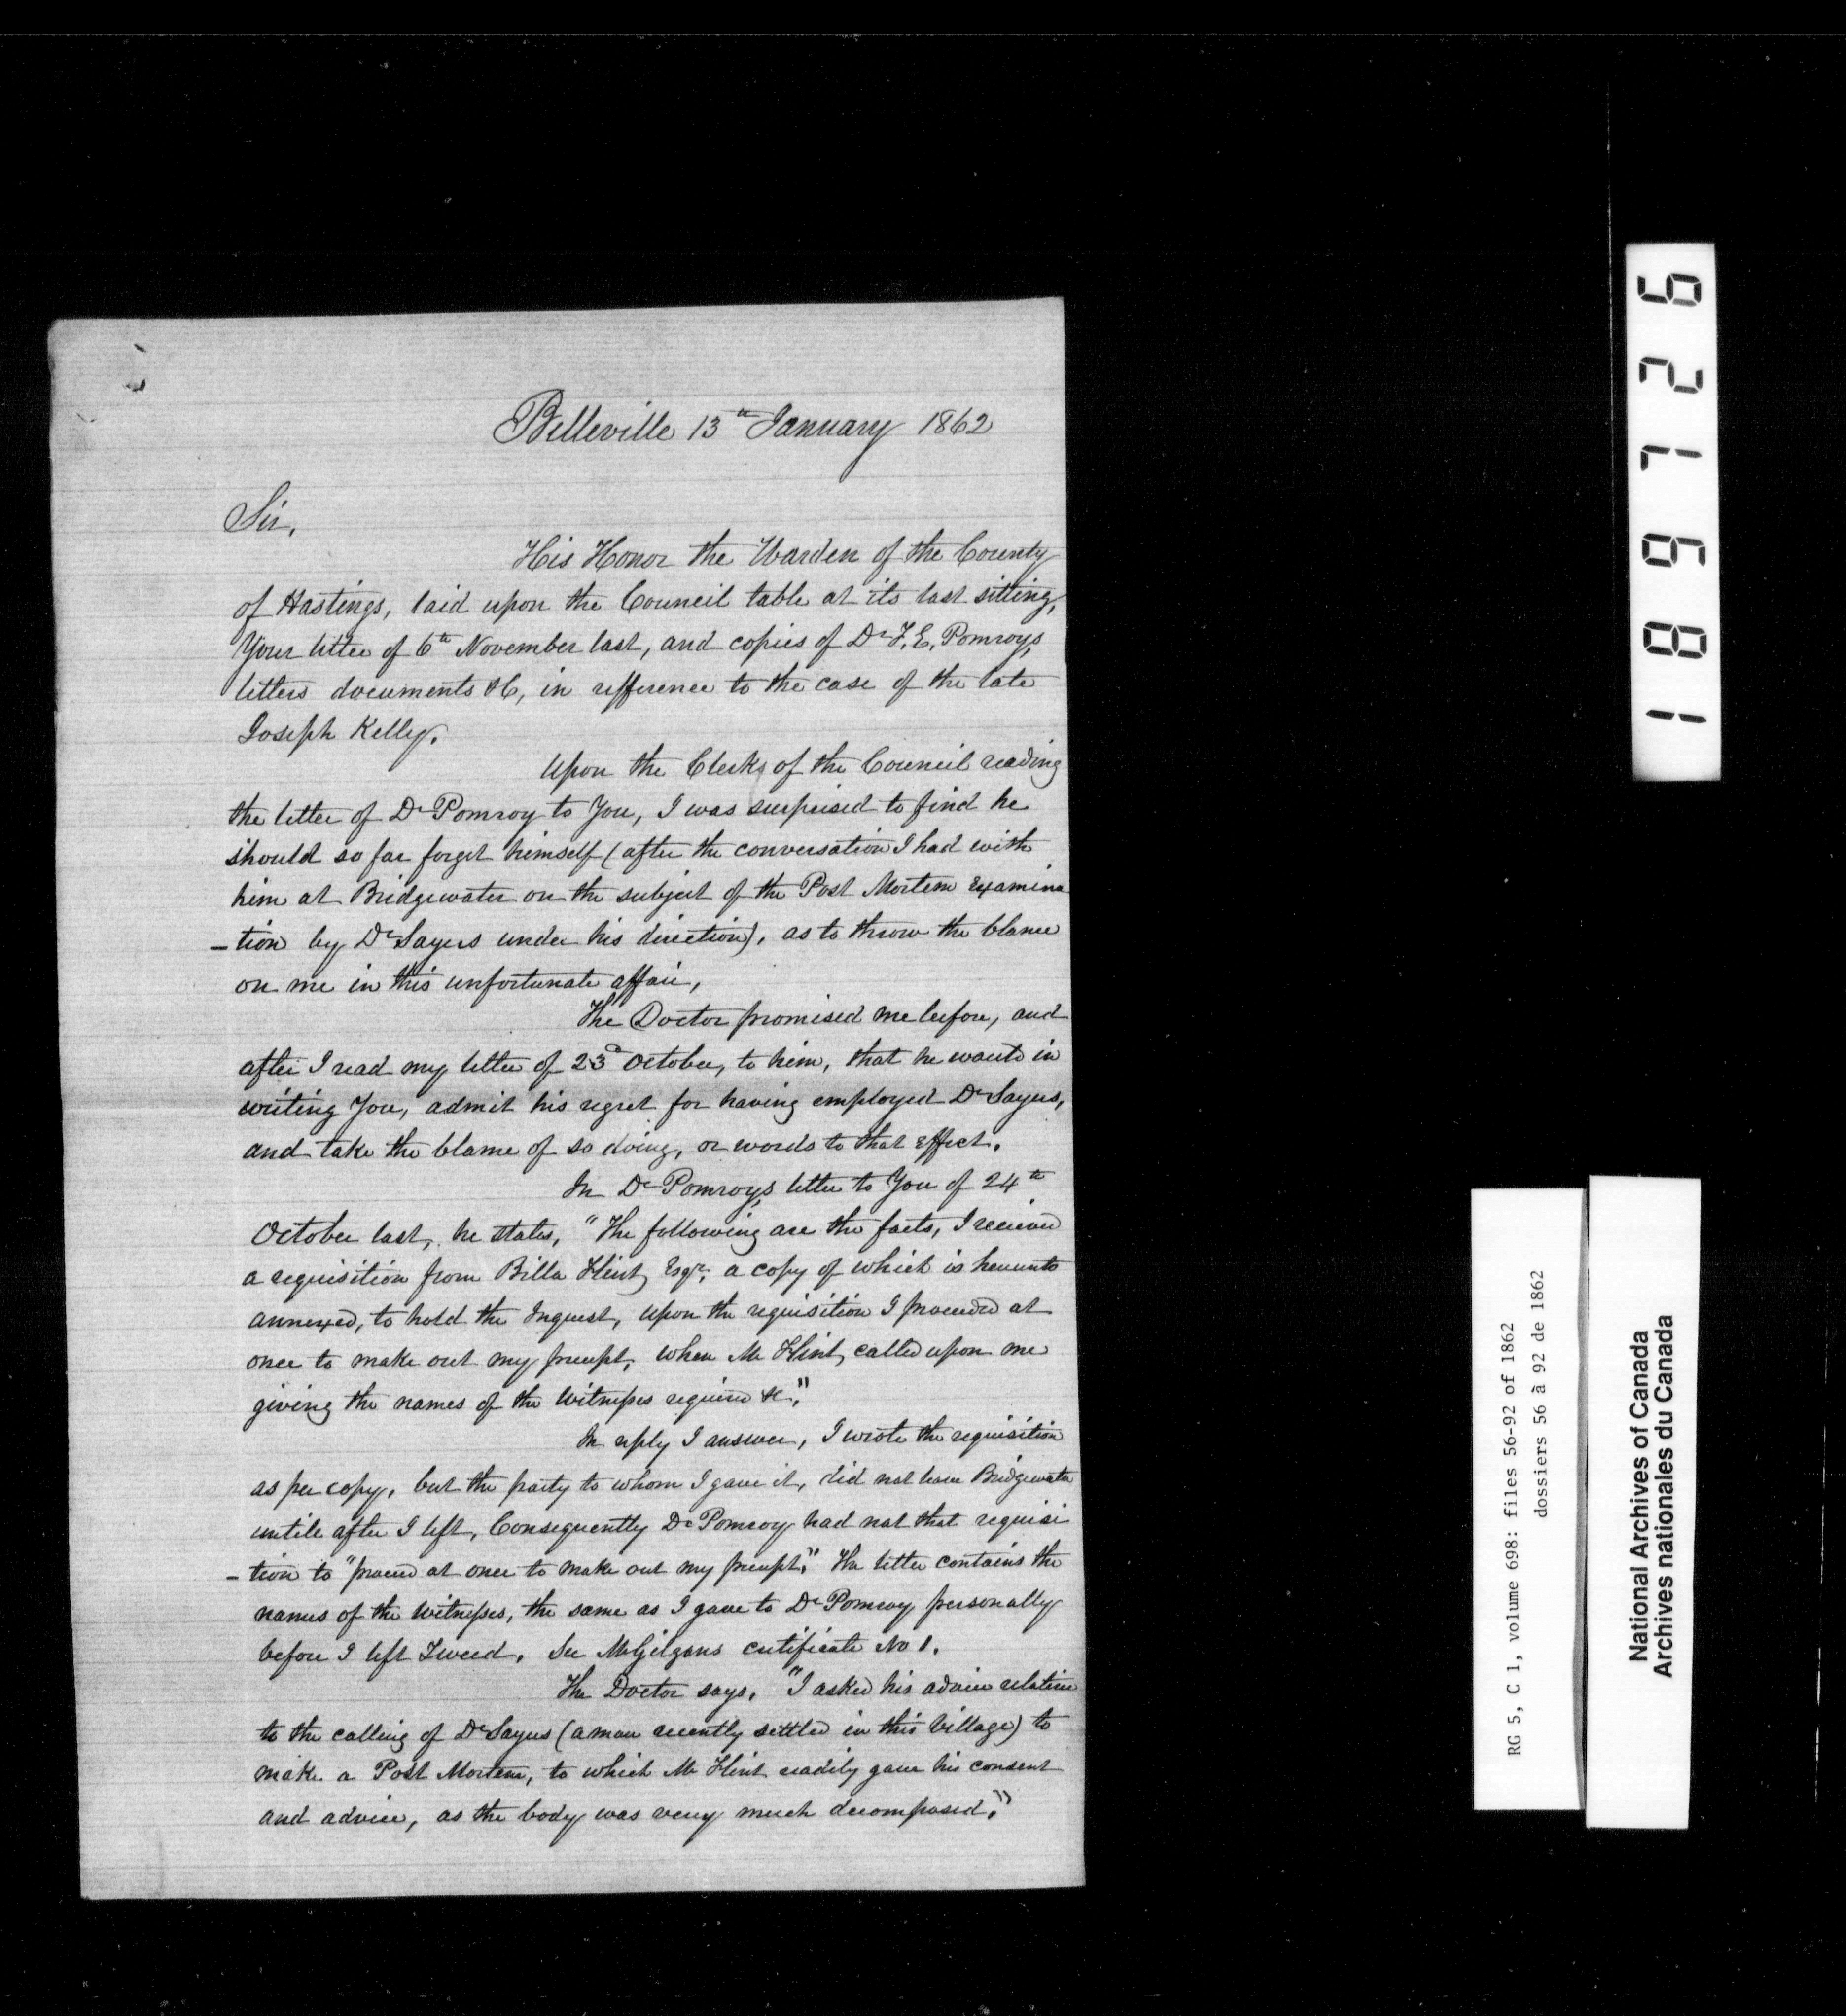 Belleville 13th January 1862
Sir,
His Honor the Warden of the County
of Hastings, laid upon the Council table at its last sitting,
Your letter of 6th November last, and copies of Dr F. E. Pomroys,
letters documents &c, in refference to the case of the late
Joseph Kelly.
Upon the Clerk of the Council reading
the letter of Dr Pomroy to You, I was surprised to find he
should so far forget himself (after the conversation I had with
him at Bridgewater on the subject of the Post Mortem examina
-tion by Dr Sayers under his direction), as to throw the blame
on me in this unfortunate affair,
The Doctor promised me before, and
after I read my letter of 23d October, to him, that he would in
writing You, admit his regret for having employed Dr Sayers,
and take the blame of so doing, or words to that effect.
In Dr Pomroys letter to You of 24th
October last, he states, "The following are the facts, I received
a requisition from Billa Flint Esqr, a copy of which is hereunto
annexed, to hold the Inquest, upon the requisition I proceeded at
once to make out my precept, when Mr Flint, called upon me
giving the names of the Witnesses required &c,"
In reply I answer, I wrote the requisition
as per copy, but the party to whom I gave it, did not leave Bridgewater
untile after I left, Consequently Dr Pomroy had not that requisi
-tion to "proceed at once to make out my precept," The letter contains the
names of the Witnesses, the same as I gave to Dr Pomroy personally
before I left Tweed. See McGilgans certificate No 1.
The Doctor says, "I asked his advice relative
to the calling of Dr Sayers (a man recently settled in this Village) to
make a Post Mortem, to which Mr Flint readily gave his consent
and advice, as the body was very much decomposed,"
189726
RG 5, C 1, volume 698: files 56-92 of 1862
dossiers 56 à 92 de 1862
National Archives of Canada
Archives nationales du Canada